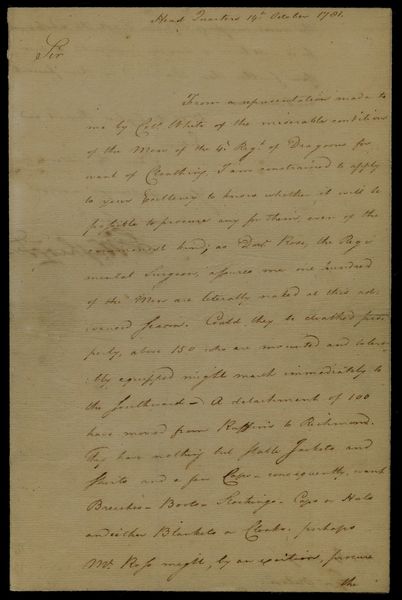 Head Quarters 14th October 1781.
Sir
From a representation made to
me by Coll. White of the miserable condition
of the Men of the 4th Regt. of Dragoons for
want of Cloathing, I am constrained to apply
to your Excellency to know whether it will be
possible to procure any for them, even of the
commonest kind; as Doctr. Rose, the Regi-
mental Surgeon, assures me one hundred
of the Men are literally naked at this ad-
vanced season. Could they be cloathed pro-
perly, above 150 who are mounted and tolera-
bly equipped might march immediately to
the Southward – A detachment of 100
have moved from Ruffins to Richmond.
They have nothing but Stable Jackets and
Shirts and a few Caps – consequently want
Breeches – Boots – Stockings – Caps or Hats
and either Blankets or Cloaks. perhaps
Mr. Ross might, by an exertion, procure
the